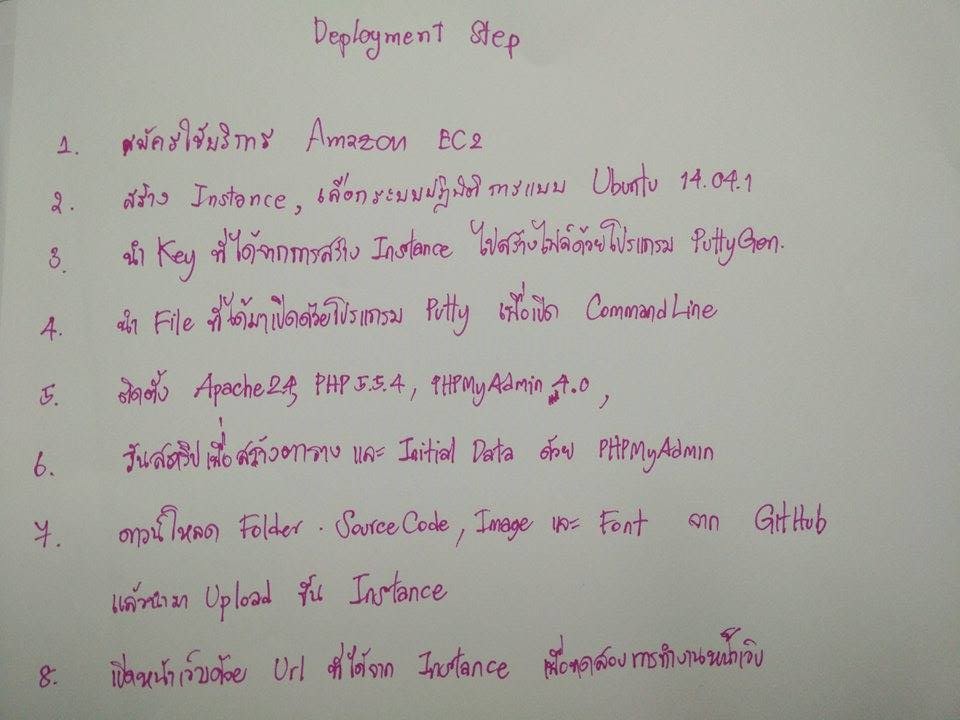 Deployment Step
1. สมัครใช้บริการ Amazon EC2
2. สร้าง Instance, เลือกระบบปฏิบัติการแบบ Ubuntu 14.04.1
3. นำ Key ที่ได้จากการสร้าง Instance ไปสร้างไฟล์ด้วยโปรแกรม PuttyGen.
4. นำ File ที่ได้มาเปิดด้วยโปรแกรม Putty เพื่อเปิด CommandLine
5. ติดตั้ง Apache2.4, PHP 5.5.4, PHPMyAdmin 4.0,
6. รันสคริปเพื่อสร้างตาราง และ Initial Data ด้วย PHPMyAdmin
7. ดาวน์โหลด Folder. SourceCode, Image และ Font จาก GitHub
แล้วนำมา Upload ขึ้น Instance
8. เปิดหน้าเว็บด้วย Url ที่ได้จาก Instance เพื่อทดสอบการทำงานหน้าเว็บ